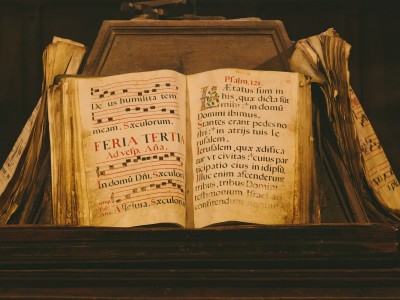 De us humilita tem
meam, Sæculorum.
FERIA TERTIA
Ad vesp. Aña.
In domū Dñi. Sæculorū
Sæculorū
Psalm. 121.
LÆtatus sum in
his, quæ dicta sūt
mihi: * in domū
Domini ibimus.
Stantes erant pedes no
stri: * in atrijs tuis Ie
rusalem.
Ierusalem, quæ ædifica
tur vt civitas: * cuius par
ticipatio eius in idipsū.
Illuc enim ascenderunt
tribus, tribus Domini:
testimonium Israel ad
confitendum